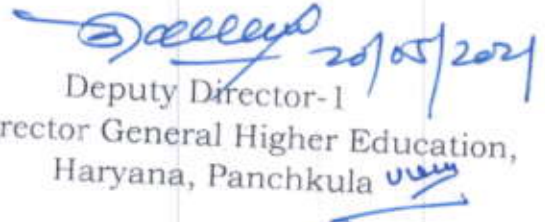 20/05/2021
Deputy Director-1
rector General Higher Education,
Haryana, Panchkula